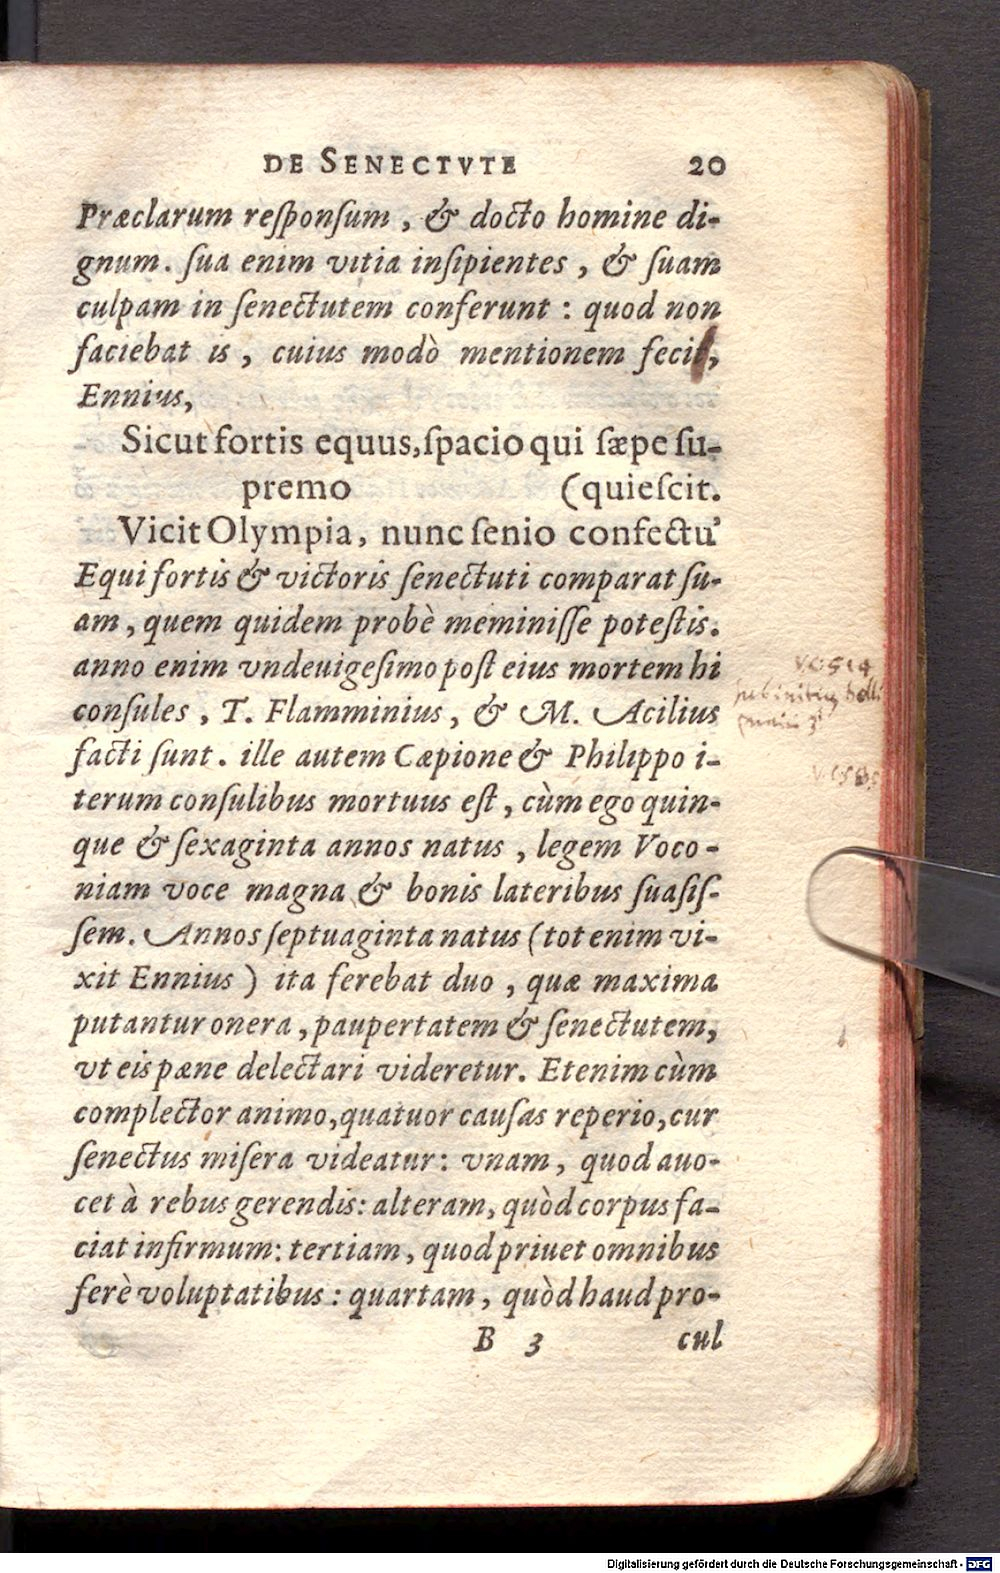 DE SENECTVTE 20
Præclarum reſponſum, & docto homine di-
gnum. ſua enim vitia inſipientes, & ſuam
culpam in ſenectutem conferunt: quod non
faciebat is, cuius modò mentionem feci,
Ennius,
Sicut fortis equus, ſpacio qui ſæpe ſu-
premo (quieſcit.
Vicit Olympia, nunc ſenio confectu'
Equi fortis & victoris ſenectuti comparat ſu-
am, quem quidem probè meminiſſe poteſtis.
anno enim vndeuigeſimo poſt eius mortem hi
conſules, T. Flamminius, & M. Acilius
facti ſunt. ille autem Cæpione & Philippo i-
terum conſulibus mortuus eſt, cùm ego quin-
que & ſexaginta annos natus, legem Voco-
niam voce magna & bonis lateribus ſuaſiſ-
ſem. Annos ſeptuaginta natus (tot enim vi-
xit Ennius) ita ferebat duo, quæ maxima
putantur onera, paupertatem & ſenectutem,
vt eis pæne delectari videretur. Etenim cùm
complector animo, quatuor cauſas reperio, cur
ſenectus miſera videatur: vnam, quod auo-
cet à rebus gerendis: alteram, quòd corpus fa-
ciat infirmum: tertiam, quod priuet omnibus
ferè voluptatibus: quartam, quòd haud pro-
B 3 cul
Digitalisierung gefördert durch die Deutsche Forschungsgemeinschaft - DFG